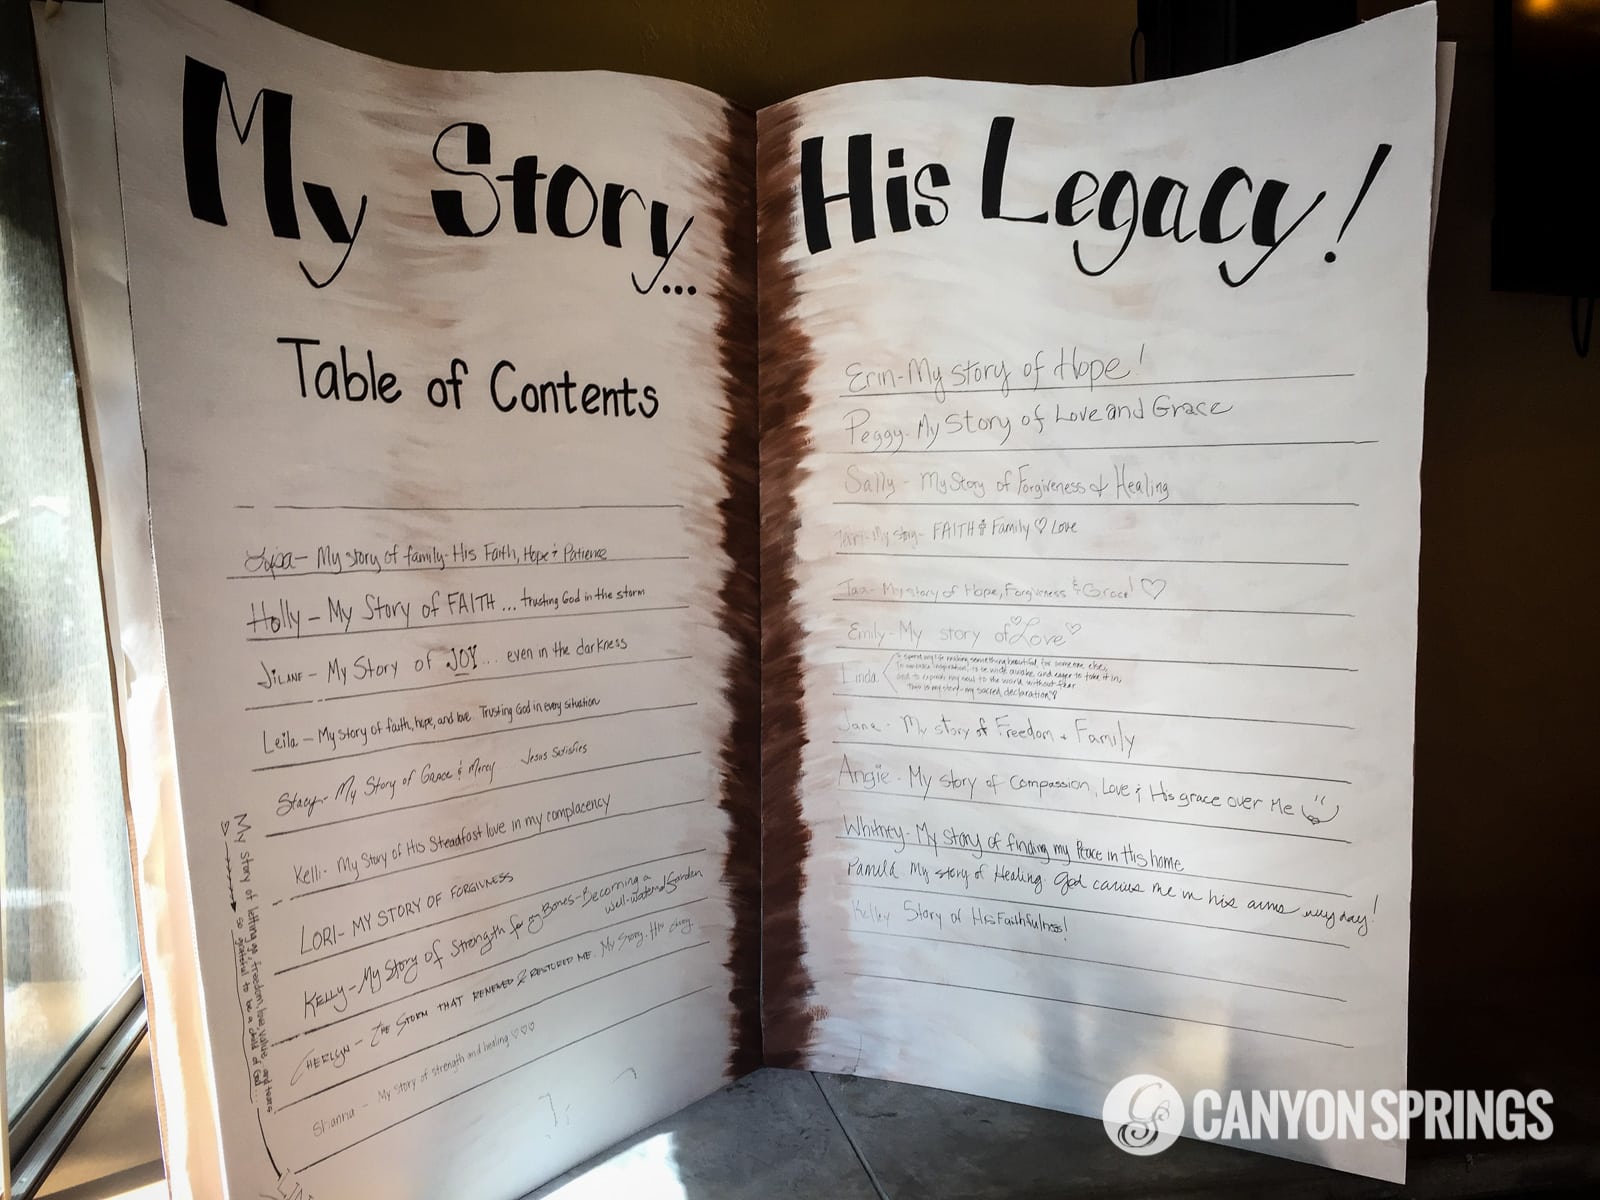 My Story...
Table of Contents
Lisa - My story of family - His Faith, Hope & Patience
Holly - My Story of FAITH ... trusting God in the storm
Jilane - My Story of JOY... even in the darkness
Leila - My story of faith, hope, and love Trusting God in every situation
Stacy - My Story of Grace & Mercy.... Jesus Satisfies
Kelli - My Story of His Steadfast love in my complacency
LORI - MY STORY OF FORGIVNESS
Kelly - My Story of Strength for my Bones - Becoming a
well-watered Garden
CHERILYN - THE STORM THAT RENEWED & RESTORED ME. My Story. His glory.
Shanna - My story of strength and healing ♡♡♡
My story of letting go, freedom,
so grateful to be a child of God...
His Legacy!
Erin - My story of Hope!
Peggy - My Story of Love and Grace
Sally - My Story of Forgiveness & Healing
My story - FAITH & Family ♡ Love
My story of Hope, Forgiveness & Grace! ♡
Emily - My story of Love
Linda
To spend my life making something beautiful, for someone else,
to embrace inspiration, to be wide awake and eager to take it in,
and to express my soul to the world without fear
This is my story - my sacred declaration ♡
Jane - My story of Freedom + Family
Angie - My story of Compassion, Love & His grace over Me
Whitney - My story of finding my Peace in His home
Pamela My story of Healing. God carries me in his arms everyday!
Kelley Story of His Faithfulness!
CANYON SPRINGS